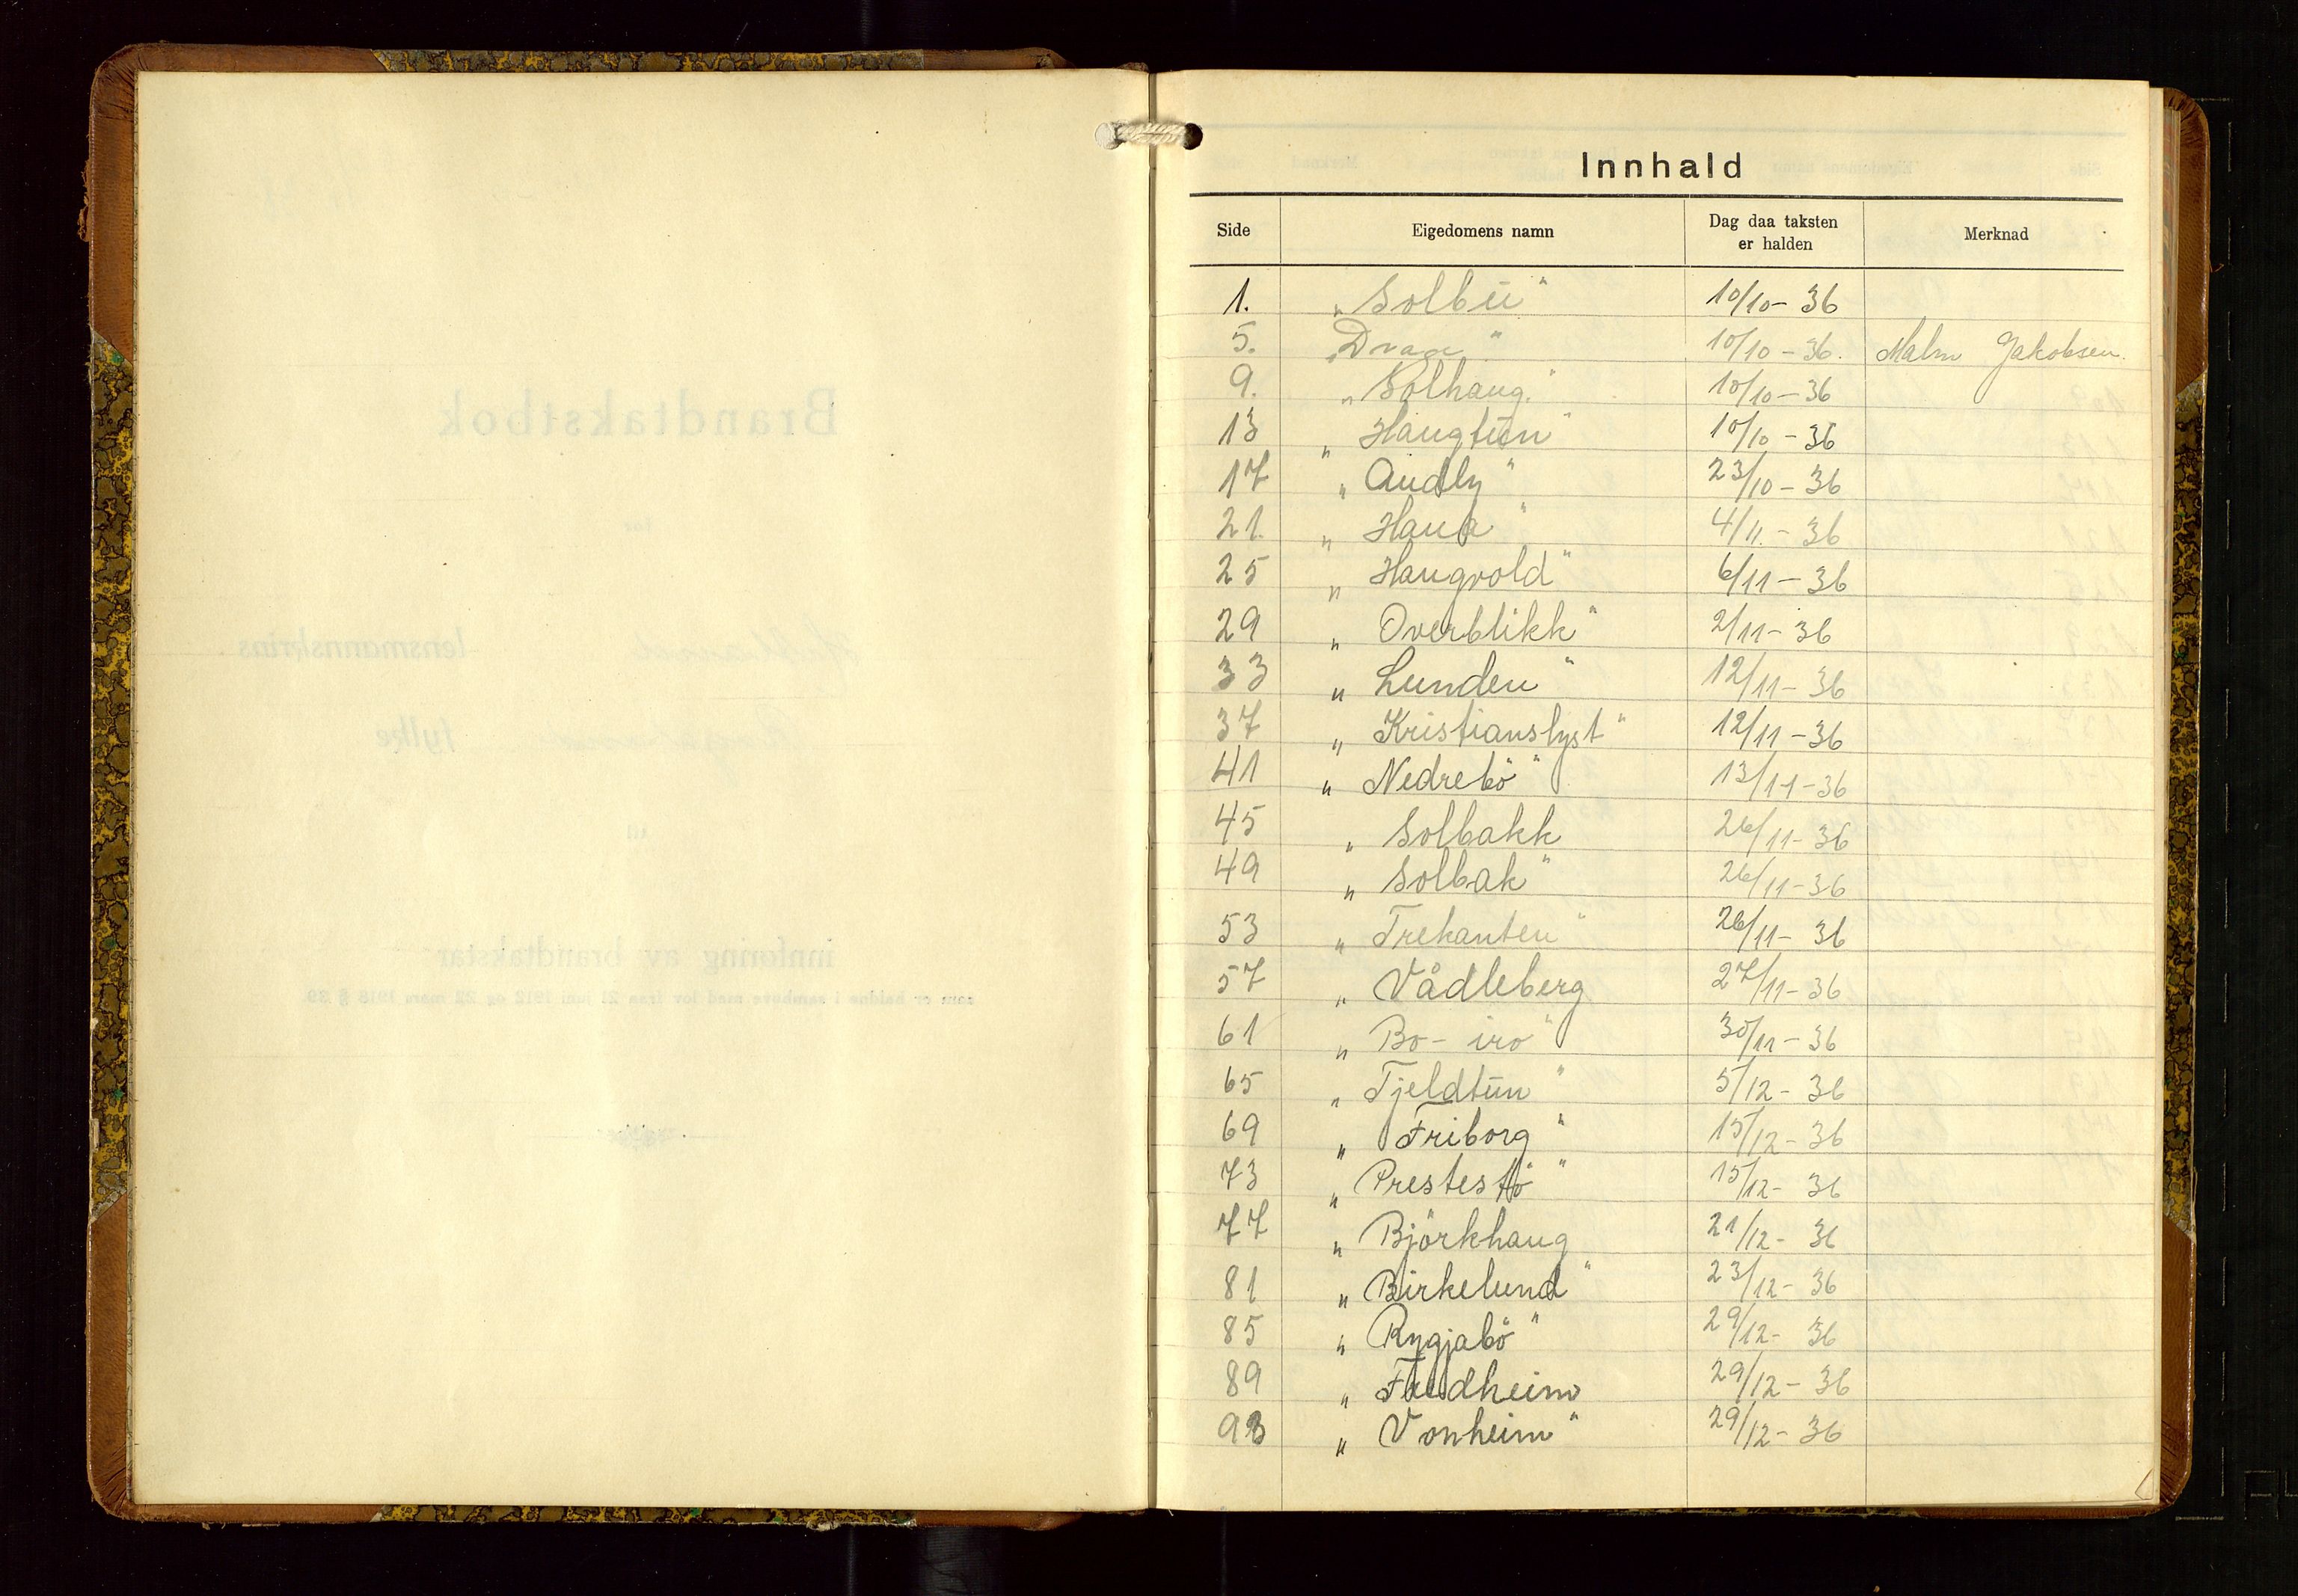 Innhald
Side Eigedomens namn Dag daa taksten er halden Merknad
1. „Solbu" 10/10-36
5. „Drage" 10/10-36. Malm Jakobsen.
9. „Solhaug." 10/10-36
13 „Haugtun" 10/10-36
17 „Audly" 23/10-36
21. „Haua" 4/11.-36
25 „Haugvold" 6/11-36
29 „Overblikk" 2/11-36
33 „Lunden" 12/11-36
37 „Kristianslyst" 12/11-36
41 „Nedrebö" 13/11-36
45 „Solbakk 26/11-36
49 „Solbak" 26/11-36
53 „Trekanten" 26/11-36
57 „Vådleberg 27/11-36
61 „Bo-iro" 30/11-36
65 „Tjeldtun" 5/12-36
69 „Friborg" 15/12-36
73 „Prestestö" 15/12-36
77 „Björkhaug 21/12-36
81 „Birkelund" 23/12-36
85 „Rygjabö" 29/12-36
89 „Fredheim 29/12-36
93 „Vonheim" 29/12-36